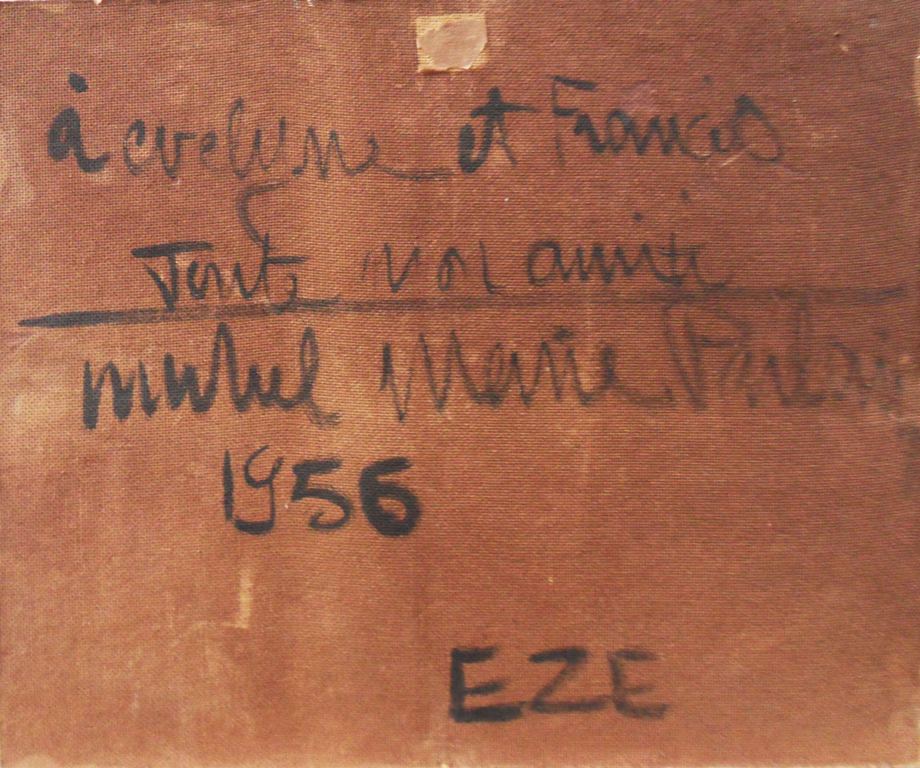 à evelyne et Francis
Tout mon amitié
michel Marie Poulain
1956
EZE